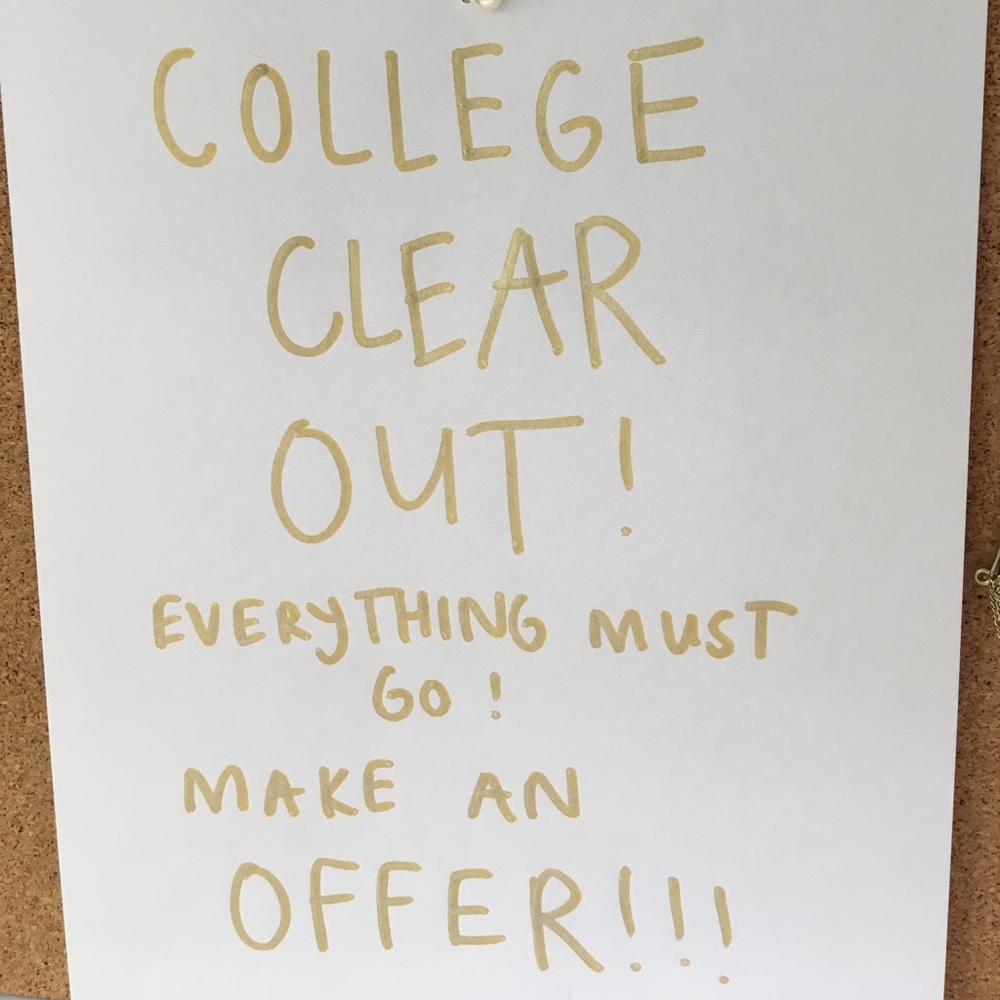 COLLEGE
CLEAR
OUT!
EVERYTHING MUST
GO!
MAKE AN
OFFER!!!